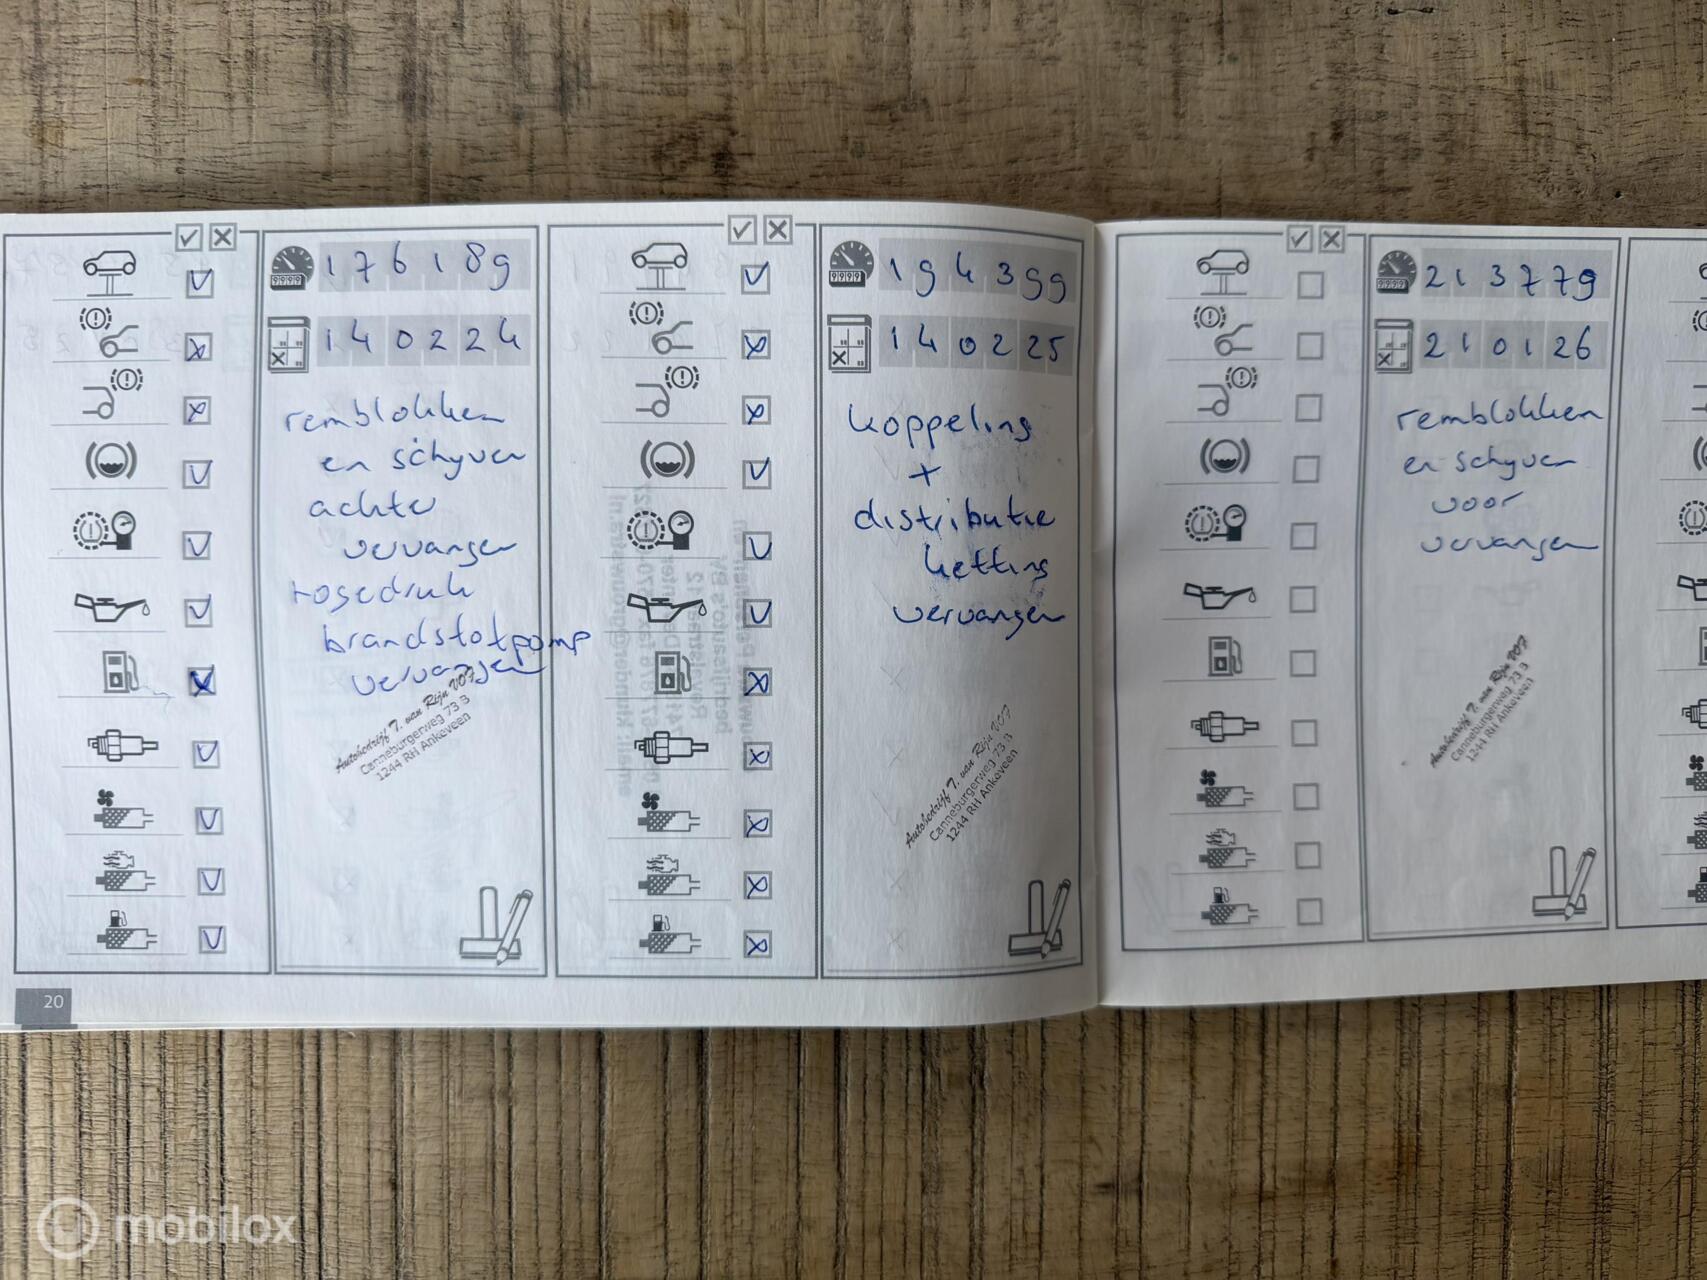 176189
140224
remblokken
en schyven
achter
vervangen
hogedruk
brandstofpomp
vervangen
Autobedrijf T. van Rijn VOF
Canneburgerweg 73 B
1244 RH Ankeveen
20
194399
140225
koppeling
+
distributie
ketting
vervangen
Autobedrijf T. van Rijn VOF
Canneburgerweg 73 B
1244 RH Ankeveen
213779
210126
remblokken
en schyven
voor
vervangen
Autobedrijf T. van Rijn VOF
Canneburgerweg 73 B
1244 RH Ankeveen
mobilox